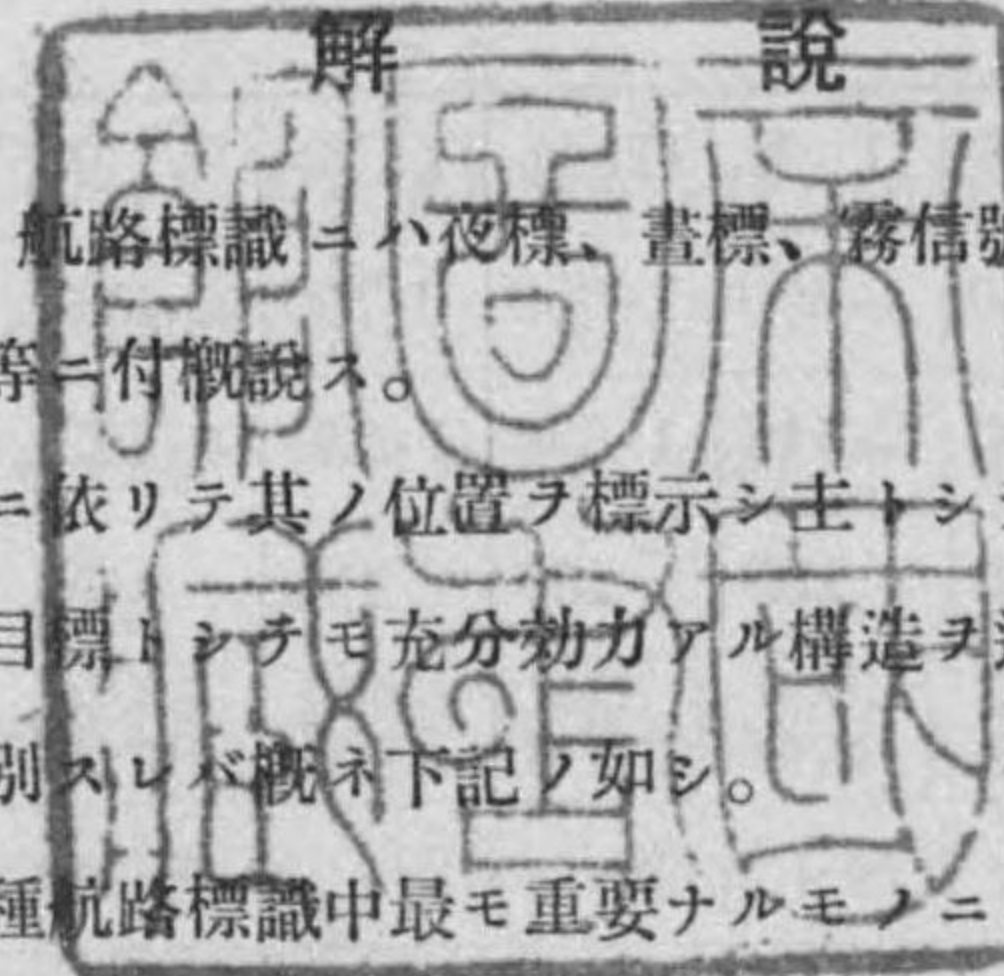 解說
航路標識ニハ夜標、晝標、霧信號
等ニ付槪說ス。
ニ依リテ其ノ位置ヲ標示シ主トシ
目標トシテモ充分効力アル構造ヲ
別スレバ槪ネ下記ノ如シ。
種航路標識中最モ重要ナルモノニ